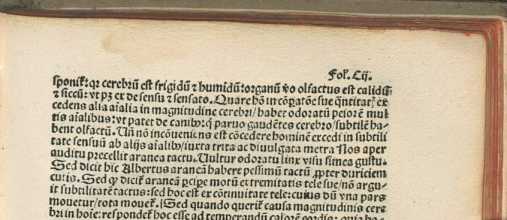 Fol. Cij.
sponik: qꝛ cerebrū est frigidū & humidū: organū v̄o olfactus est calidū
& siccū: vt pꝫ ex de sensu & sensato. Quare hō in cōpatōe sue q̄ntitatꝭ ex
cedens alia aīalia in magnitudine cerebri/ habet odoratū peiorē mul
tis aīalibus: vt patet de canibꝰ: q̄ paruo gaudētes cerebro/ subtilē ha⸗
bent olfactū. Un̄ nō incōueniēs est cōcedere hominē excedi in subtili
tate sensuū ab alijs aīalib/ iuxta trita ac diuulgata metra Nos aper
auditu precellit aranea tactu. Uultur odoratu linx visu simea gustu.
Sed dicit hic Albertus araneā habere pessimū tactū ꝓpter duriciem
cutis. Sed qꝫ dicit araneā ꝑcipe motū ex tremitatis tele sue/ nō argu⸗
it subtilitatē tactus: sed hoc est ex cōtinuitate tele: cuius dū vna pars
mouetur/ tota mouet. ¶ Sed quando querit causa magnitudinis cere
bri in hoīe: respondet hoc esse ad temperandū calorē cordis: